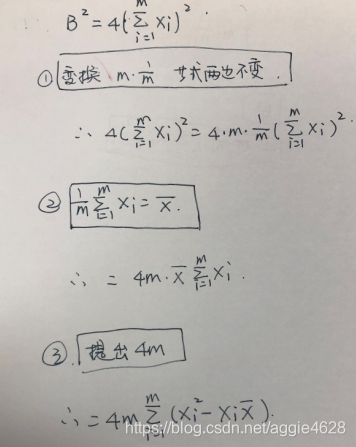 B² = 4(∑_{i=1}^{m} xi)².
① 变换 m·1/m 其式两边不变.
∴ 4(∑_{i=1}^{m} xi)² = 4·m·1/m (∑_{i=1}^{m} xi)².
② 1/m ∑_{i=1}^{m} xi = x̄.
∴ = 4m·x̄ ∑_{i=1}^{m} xi.
③. 提出4m
∴ = 4m ∑_{i=1}^{m} (xi² - xi x̄).
https://blog.csdn.net/aggie4628